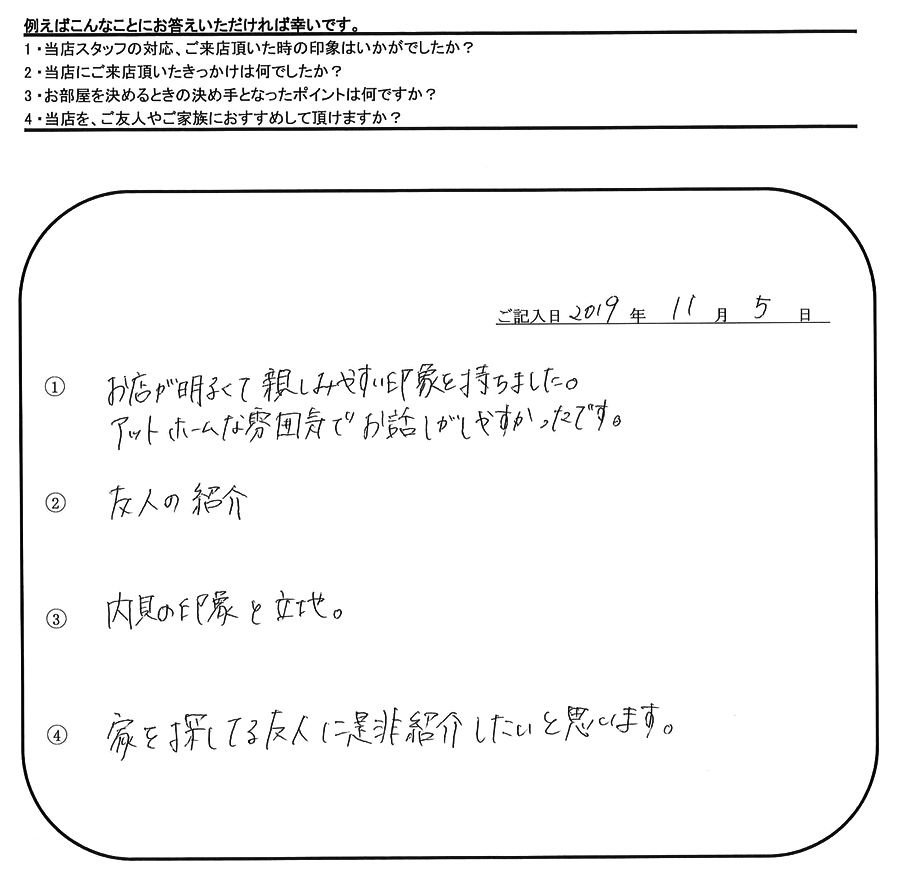 例えばこんなことにお答えいただければ幸いです。
1・当店スタッフの対応、ご来店頂いた時の印象はいかがでしたか？
2・当店にご来店頂いたきっかけは何でしたか？
3・お部屋を決めるときの決め手となったポイントは何ですか？
4・当店を、ご友人やご家族におすすめして頂けますか？
ご記入日 2019 年 11 月 5 日
① お店が明るくて親しみやすい印象を持ちました。
アットホームな雰囲気でお話しがしやすかったです。
② 友人の紹介
③ 内見の印象と立地。
④ 家を探してる友人に是非紹介したいと思います。